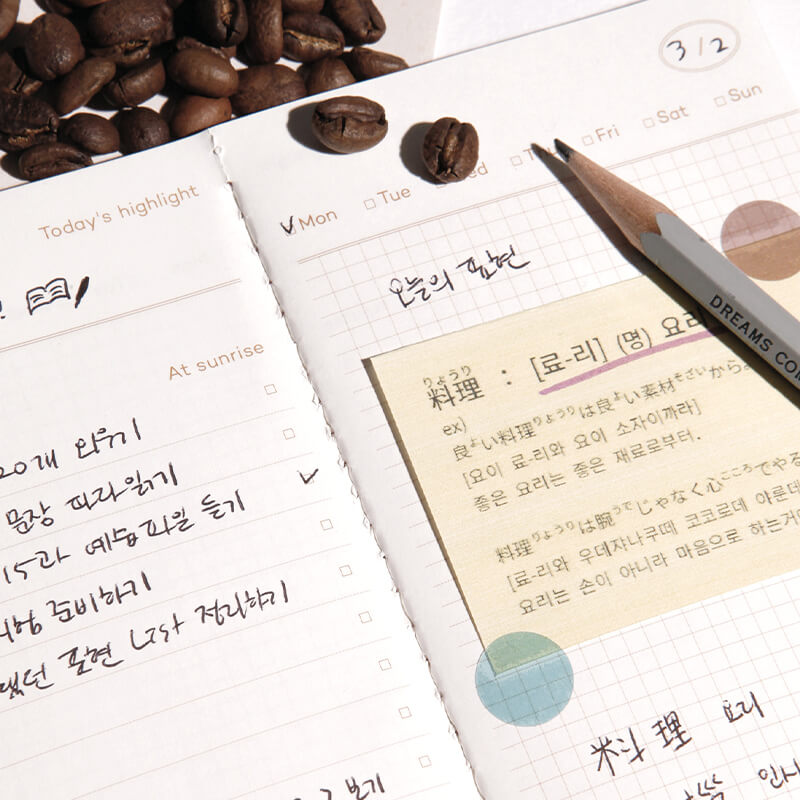 Today's highlight
At sunrise
20개 외우기
문장 따라읽기
15과 예습파일 듣기
준비하기
표현 List 정리하기
보기
3/2
Mon Tue Fri Sat Sun
오늘의 표현
料理りょうり : [료-리] (명) 요리
ex)
良よい料理りょうりは良よい素材そざいから
[요이 료-리와 요이 소자이까라]
좋은 요리는 좋은 재료로부터.
料理りょうりは腕うでじゃなく心こころでやる
[료-리와 우데쟈나쿠떼 코코로데
요리는 손이 아니라 마음으로 하는거
料理 요리
DREAMS